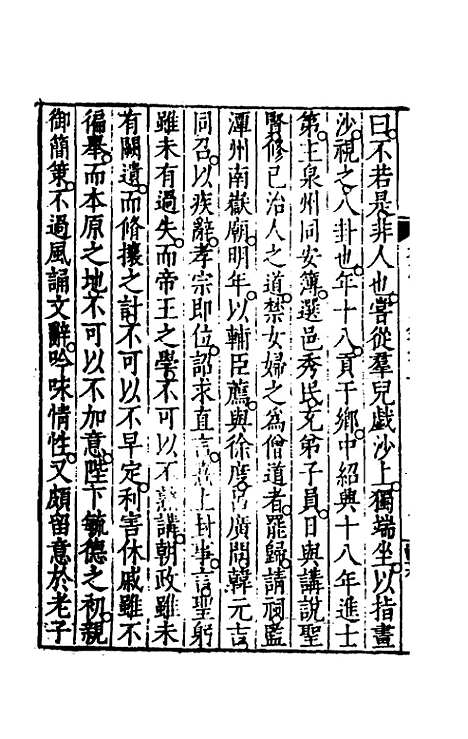 曰不若是非人也嘗從羣兒戲沙上獨端坐以指畫
沙視之八卦也年十八貢于鄉中紹興十八年進士
第主泉州同安簿選邑秀民充弟子員日與講說聖
賢修己治人之道禁女婦之爲僧道者罷歸請祠監
潭州南嶽廟明年以輔臣薦與徐度呂廣問韓元吉
同召以疾辭孝宗卽位詔求直言熹上封事言聖躬
雖未有過失而帝王之學不可以不熟講朝政雖未
有闕遺而脩攘之計不可以不早定利害休戚雖不
徧舉而本原之地不可以不加意陛下毓德之初親
御簡策不過風誦文辭吟咏情性又頗留意於老子